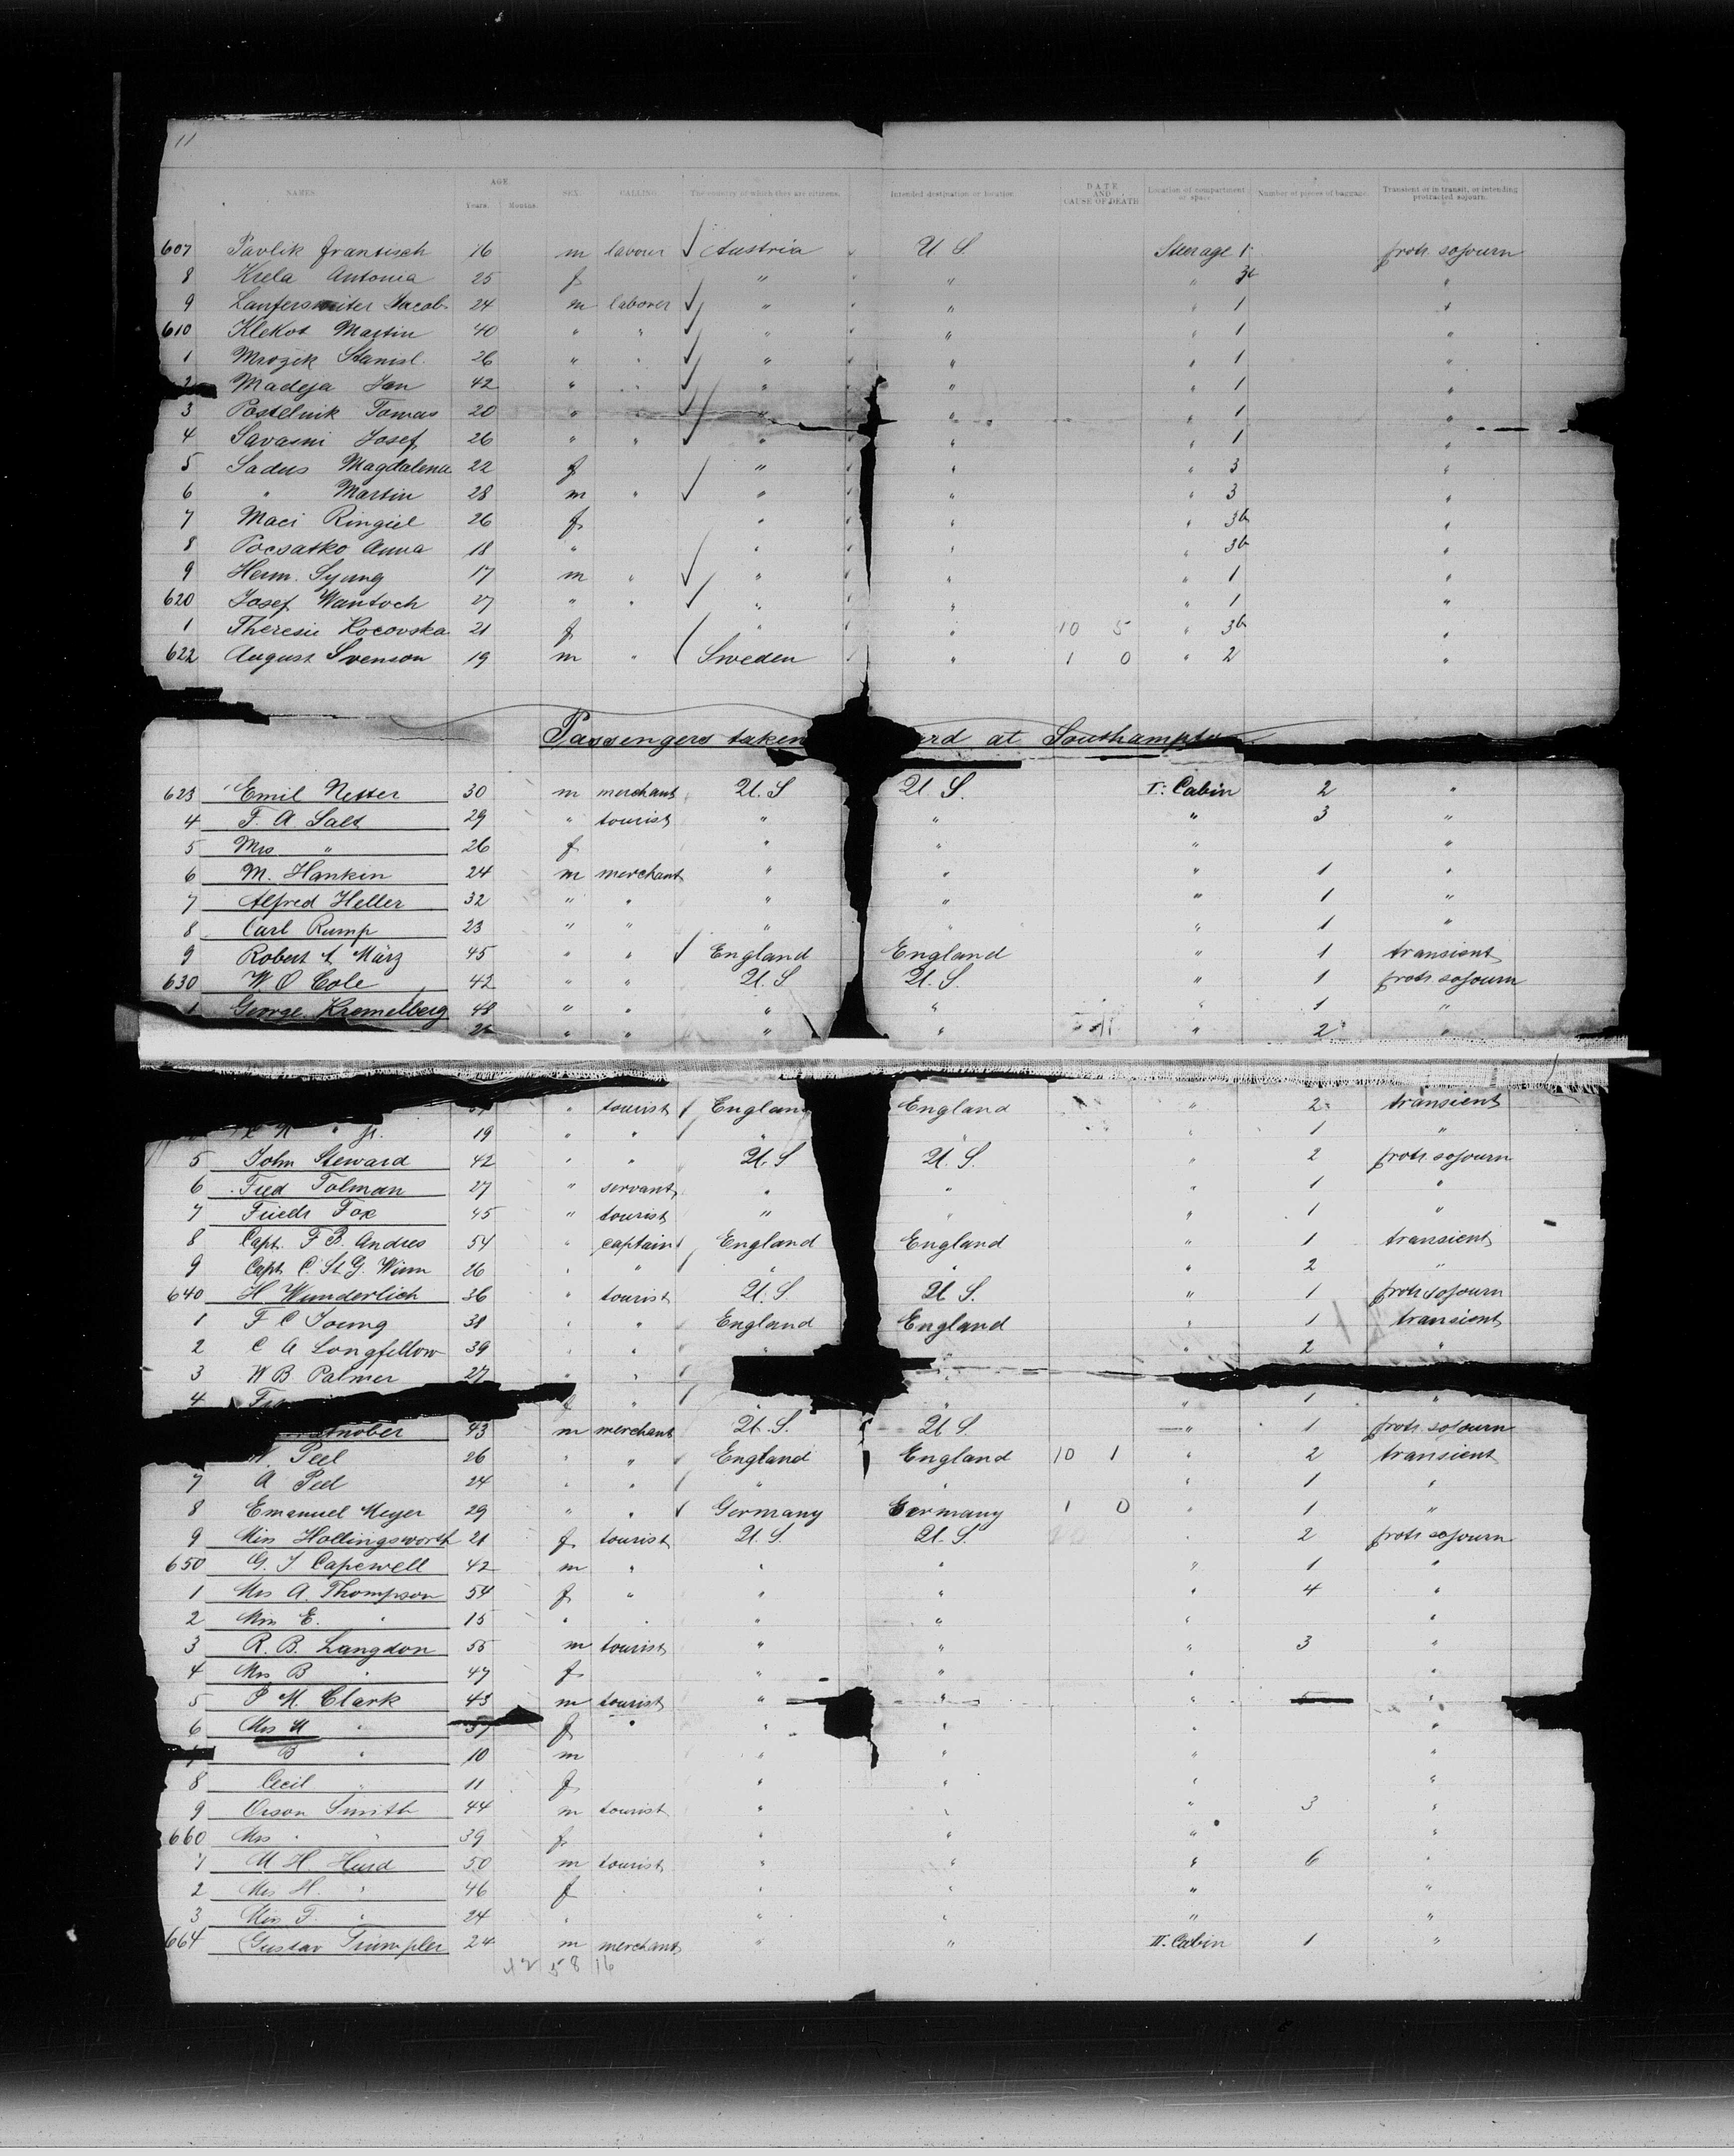 11
NAMES. AGE. Years. Months. SEX. CALLING. The country of which they are citizens. Intended destination or location. DATE AND CAUSE OF DEATH Location of compartment or space. Number of pieces of baggage. Transient or in transit, or intending protracted sojourn.
607 Pavlik Frantisch 16 m labour Austria U S. Steerage 1 protr. sojourn
8 Krela Antonia 25 f " " " "
9 Jacob 24 m laborer " " " 1 "
610 Klekot Martin 40 " " " " " 1 "
1 Mrozik Stanisl. 26 " " " " " 1 "
2 Madeja Jan 42 " " " " " 1 "
3 Postelnik Tomas 20 " " " " " 1 "
4 Savasni Josef 26 " " " " " 1 "
5 Sadus Magdalena 22 f " " " 3 "
6 " Martin 28 m " " " " 3 "
7 Maci Ringiel 26 f " " " 3b "
8 Pocsatko Anna 18 " " " " 3b "
9 Herm. Syung 17 m " " " " 1 "
620 Josef Wantoch 27 " " " " " 1 "
1 Theresie Kocovska 21 f " " 10 5 " 3b "
622 August Svenson 19 m " Sweden " 1 0 " 2 "
Passengers taken at Southampton
623 Emil Netter 30 m merchant U. S U S. I. Cabin 2 "
4 F. A. Salt 29 " tourist " " " 3 "
5 Mrs " 26 f " " " "
6 M. Hankin 24 m merchant " " " 1 "
7 Alfred Heller 32 " " " " " 1 "
8 Carl Rump 23 " " " " " 1 "
9 Robert März 45 " " England England " 1 transient
630 W. O Cole 42 " " U. S U. S. " 1 protr. sojourn
1 George Kremelberg 48 " " " " " 1 "
" " " " " 2 "
" tourist England England " 2 transient
" jr. 19 " " " " " 1 "
5 John Steward 42 " " U. S U. S. " 2 protr. sojourn
6 Fred Tolman 27 " servant " " " 1 "
7 Friedr Fox 45 " tourist " " " 1 "
8 Capt. F. B. Andres 54 " captain England England " 1 transient
9 Capt C. St G. Winn 26 " " " " " 2 "
640 H. Wunderlich 36 " tourist U. S. U S. " 1 protr. sojourn
1 F C Young 38 " " England England " 1 transient
2 C A Longfellow 39 " " " " 2 "
3 W B Palmer 27 " " "
4 f " " " " 1 "
43 m merchant U. S. U S. " 1 protr. sojourn
W. Peel 26 " " England England 10 1 " 2 transient
7 A Peel 24 " " " " " 1 "
8 Emanuel Meyer 29 " " Germany Germany 1 0 " 1 "
9 Miss Hollingsworth 21 f tourist U. S. U. S. " 2 protr sojourn
650 G. J Capewell 42 m " " " " 1 "
1 Mrs A. Thompson 54 f " " " " 4 "
2 Miss E. " 15 " " " " " "
3 R. B. Langdon 55 m tourist " " " 3 "
4 Mrs B " 47 f " " " "
5 P M. Clark 43 m tourist " " " 5 "
6 Mrs M " 37 f " " " " "
7 B " 10 m " " " "
8 Cecil " 11 f " " " "
9 Orson Smith 44 m tourist " " " 3 "
660 Mrs " " 39 f " " " "
1 M H. Hurd 50 m tourist " " " 6 "
2 Mrs H. " 46 f " " " "
3 Miss F. " 24 " " " " "
664 Gustav Trümpler 24 m merchant " " II. Cabin 1 "
42 58 16